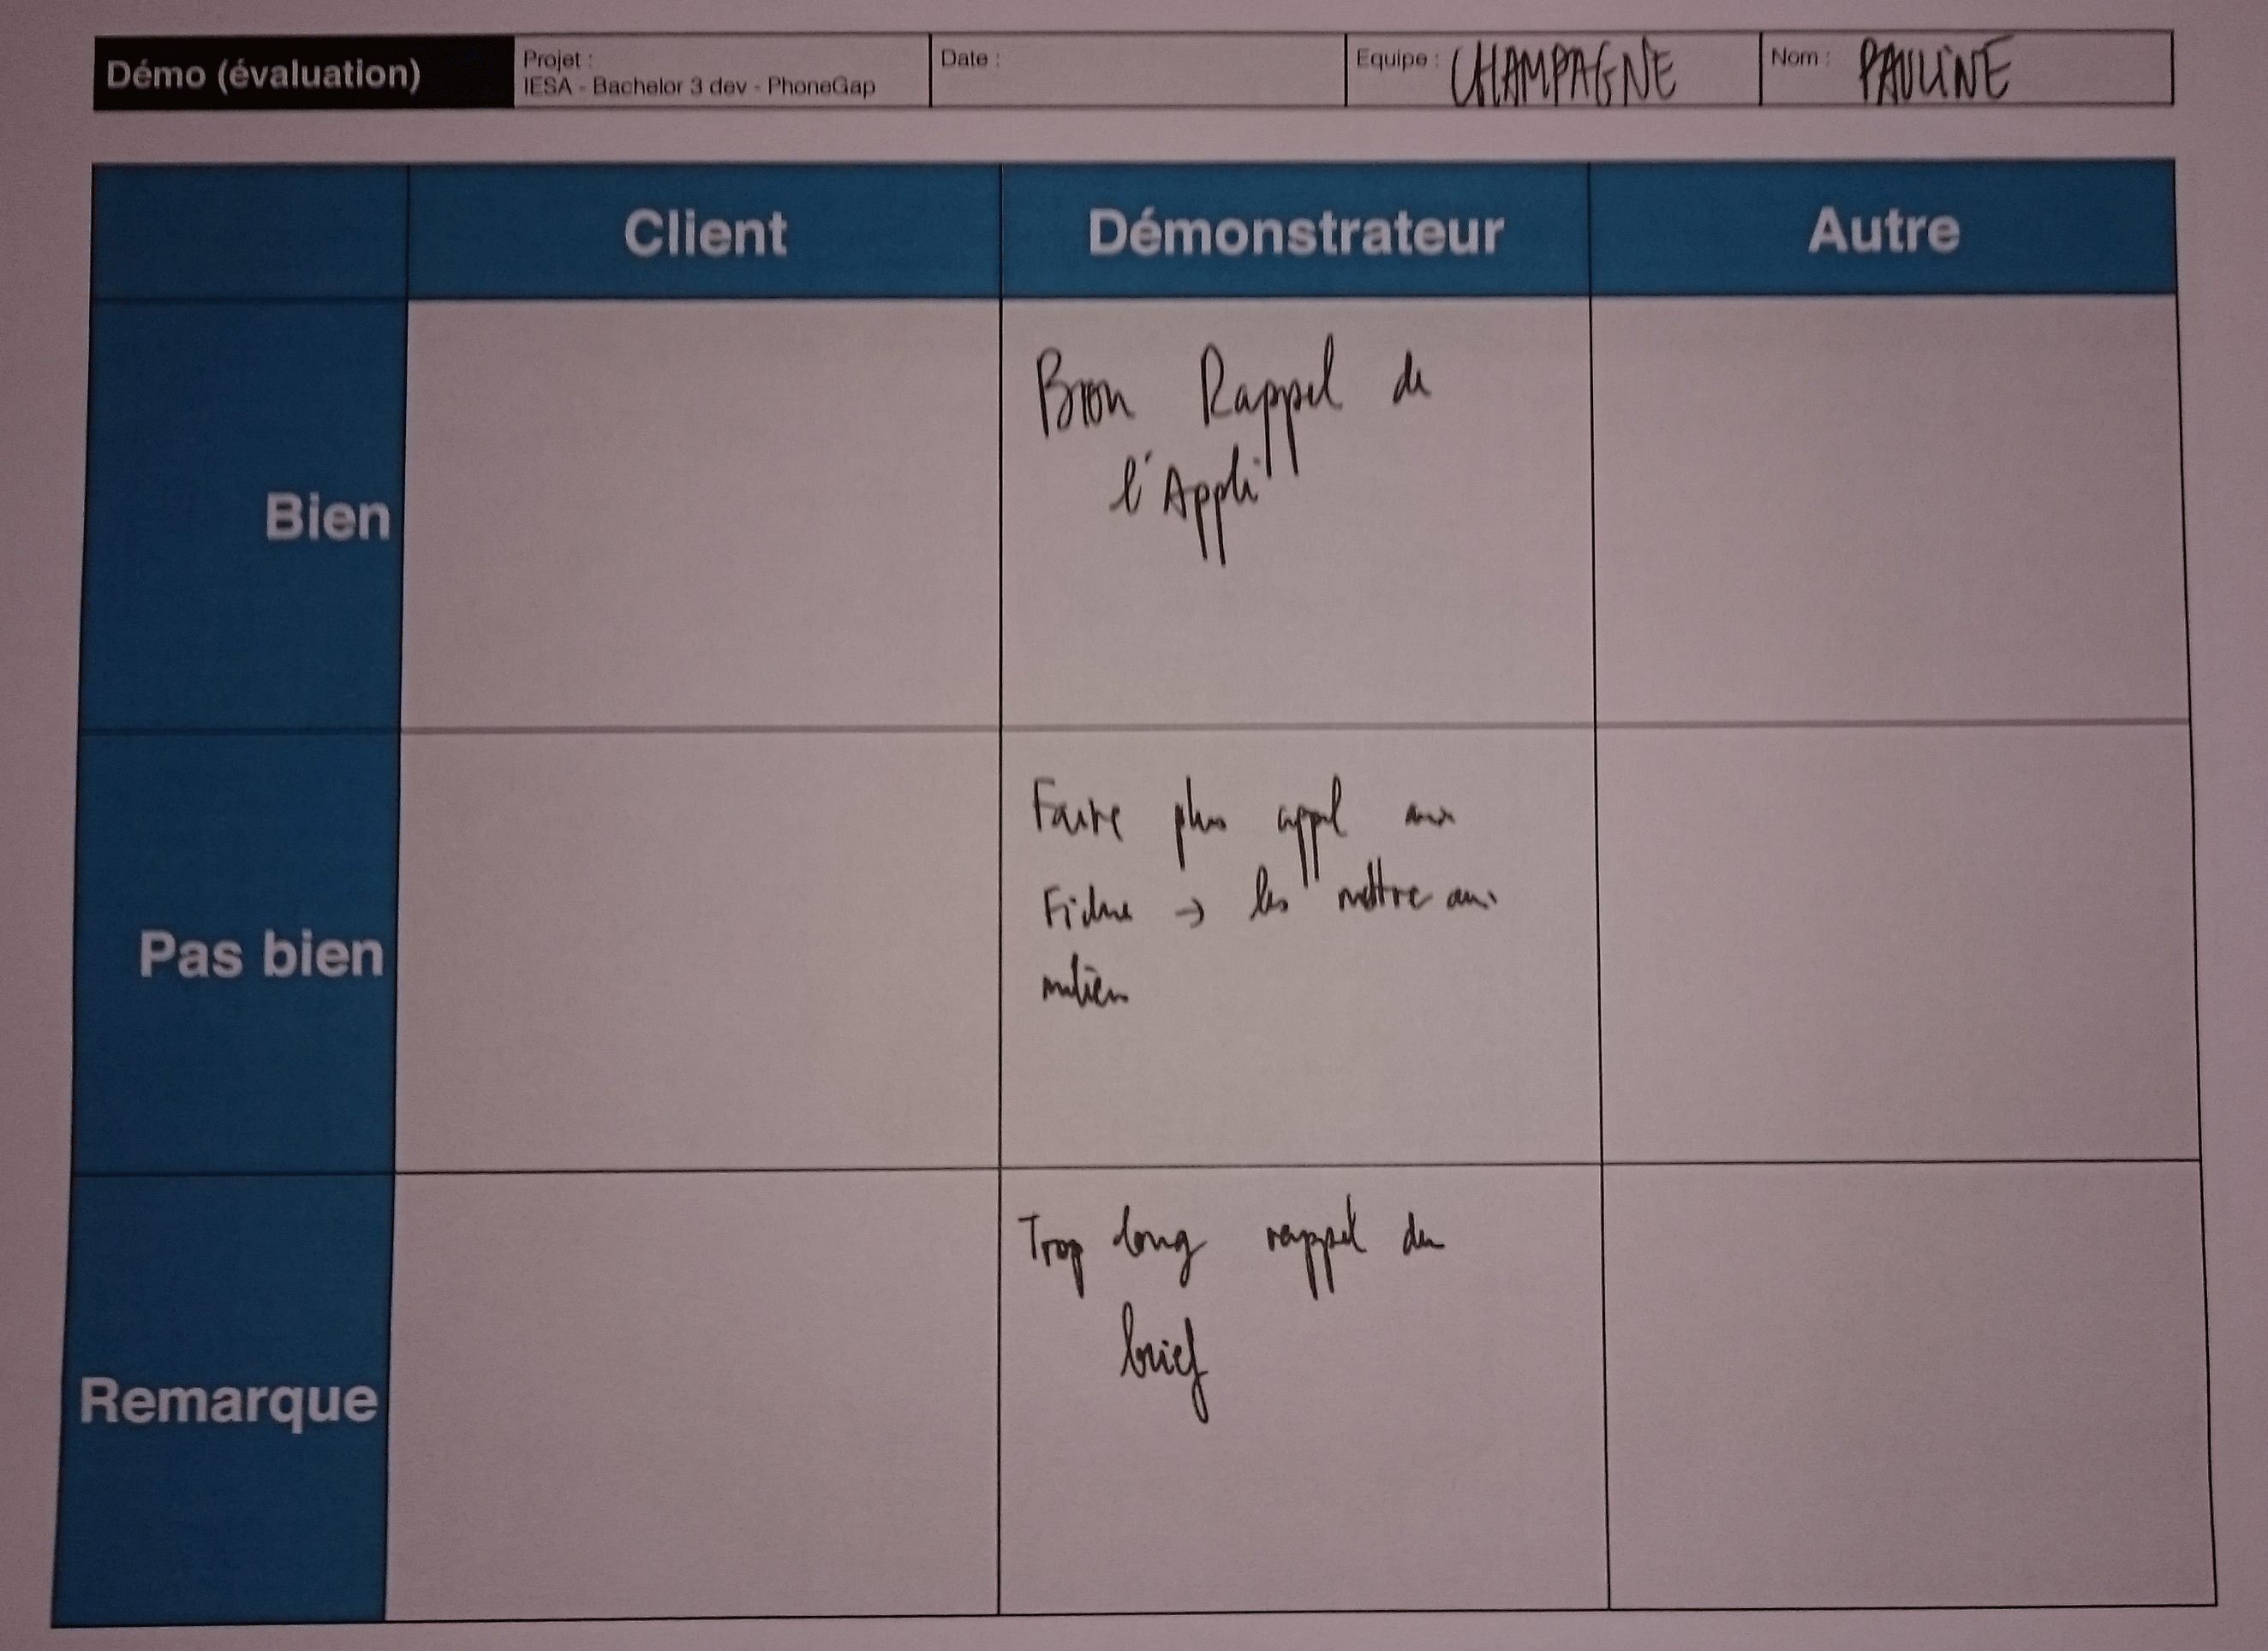 Démo (évaluation)
Projet :
IESA - Bachelor 3 dev - PhoneGap
Date :
Equipe : CHAMPAGNE
Nom : PAULINE
Client
Démonstrateur
Autre
Bien
Bon Rappel de
l'Appli
Pas bien
Faire plus appel aux
Fiche → les mettre au
milieu
Remarque
Trop long rappel du
brief